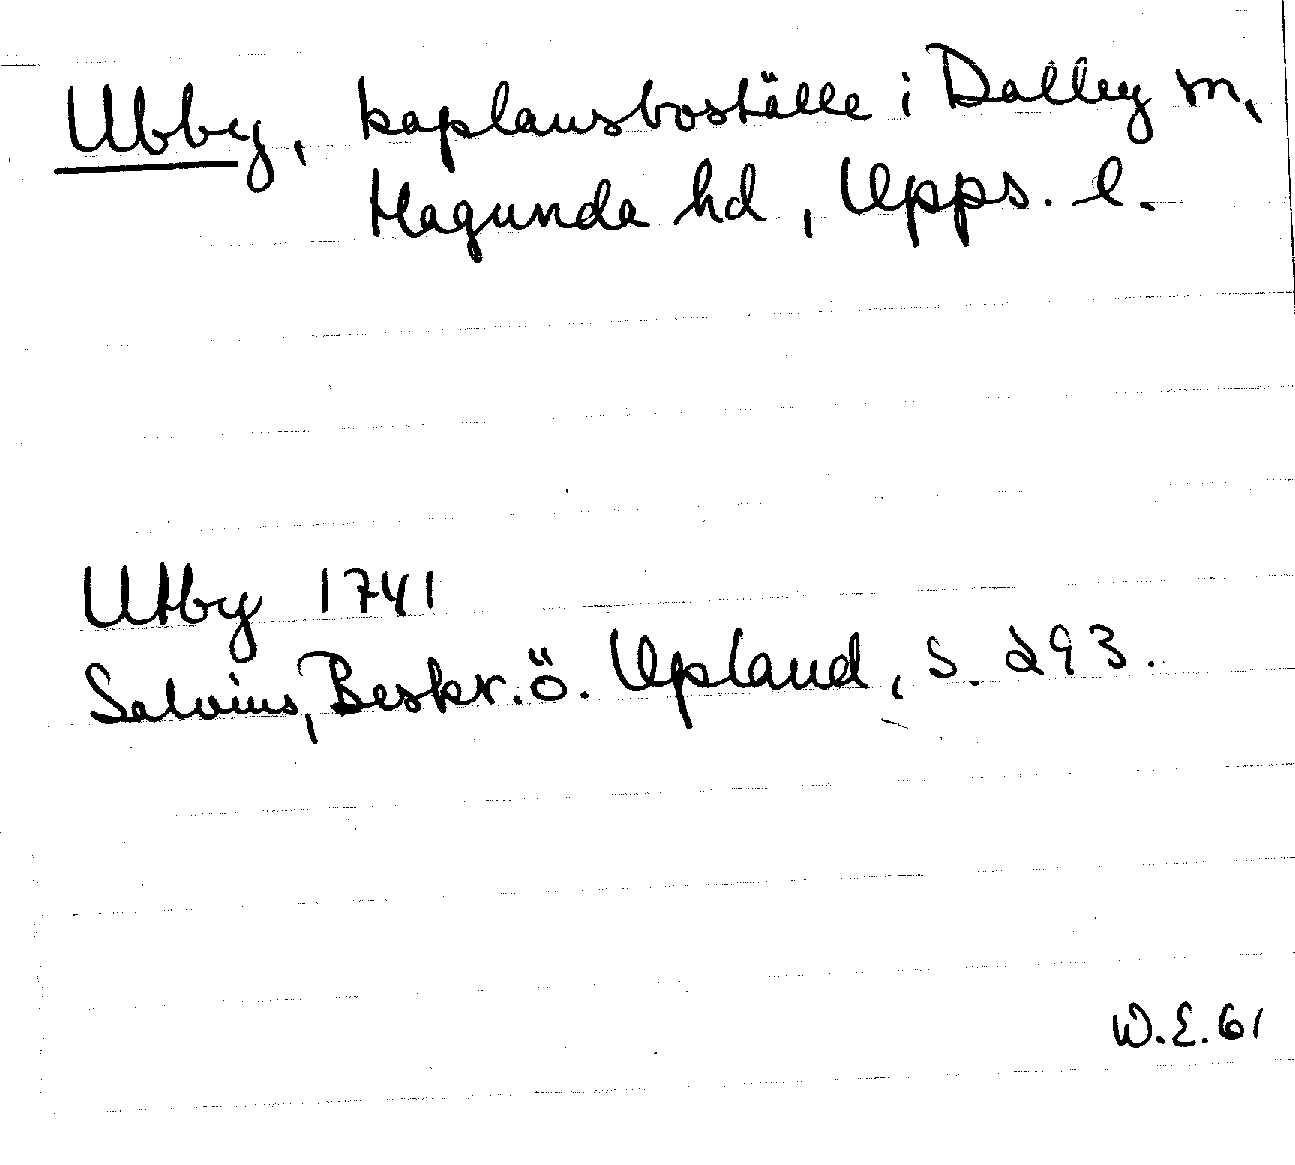 Ubby, kaplansboställe i Dalby sn,
Hagunda hd, Upps. l.
Utby 1741
Salvius, Beskr. ö. Upland, s. 293.
W.E. 61